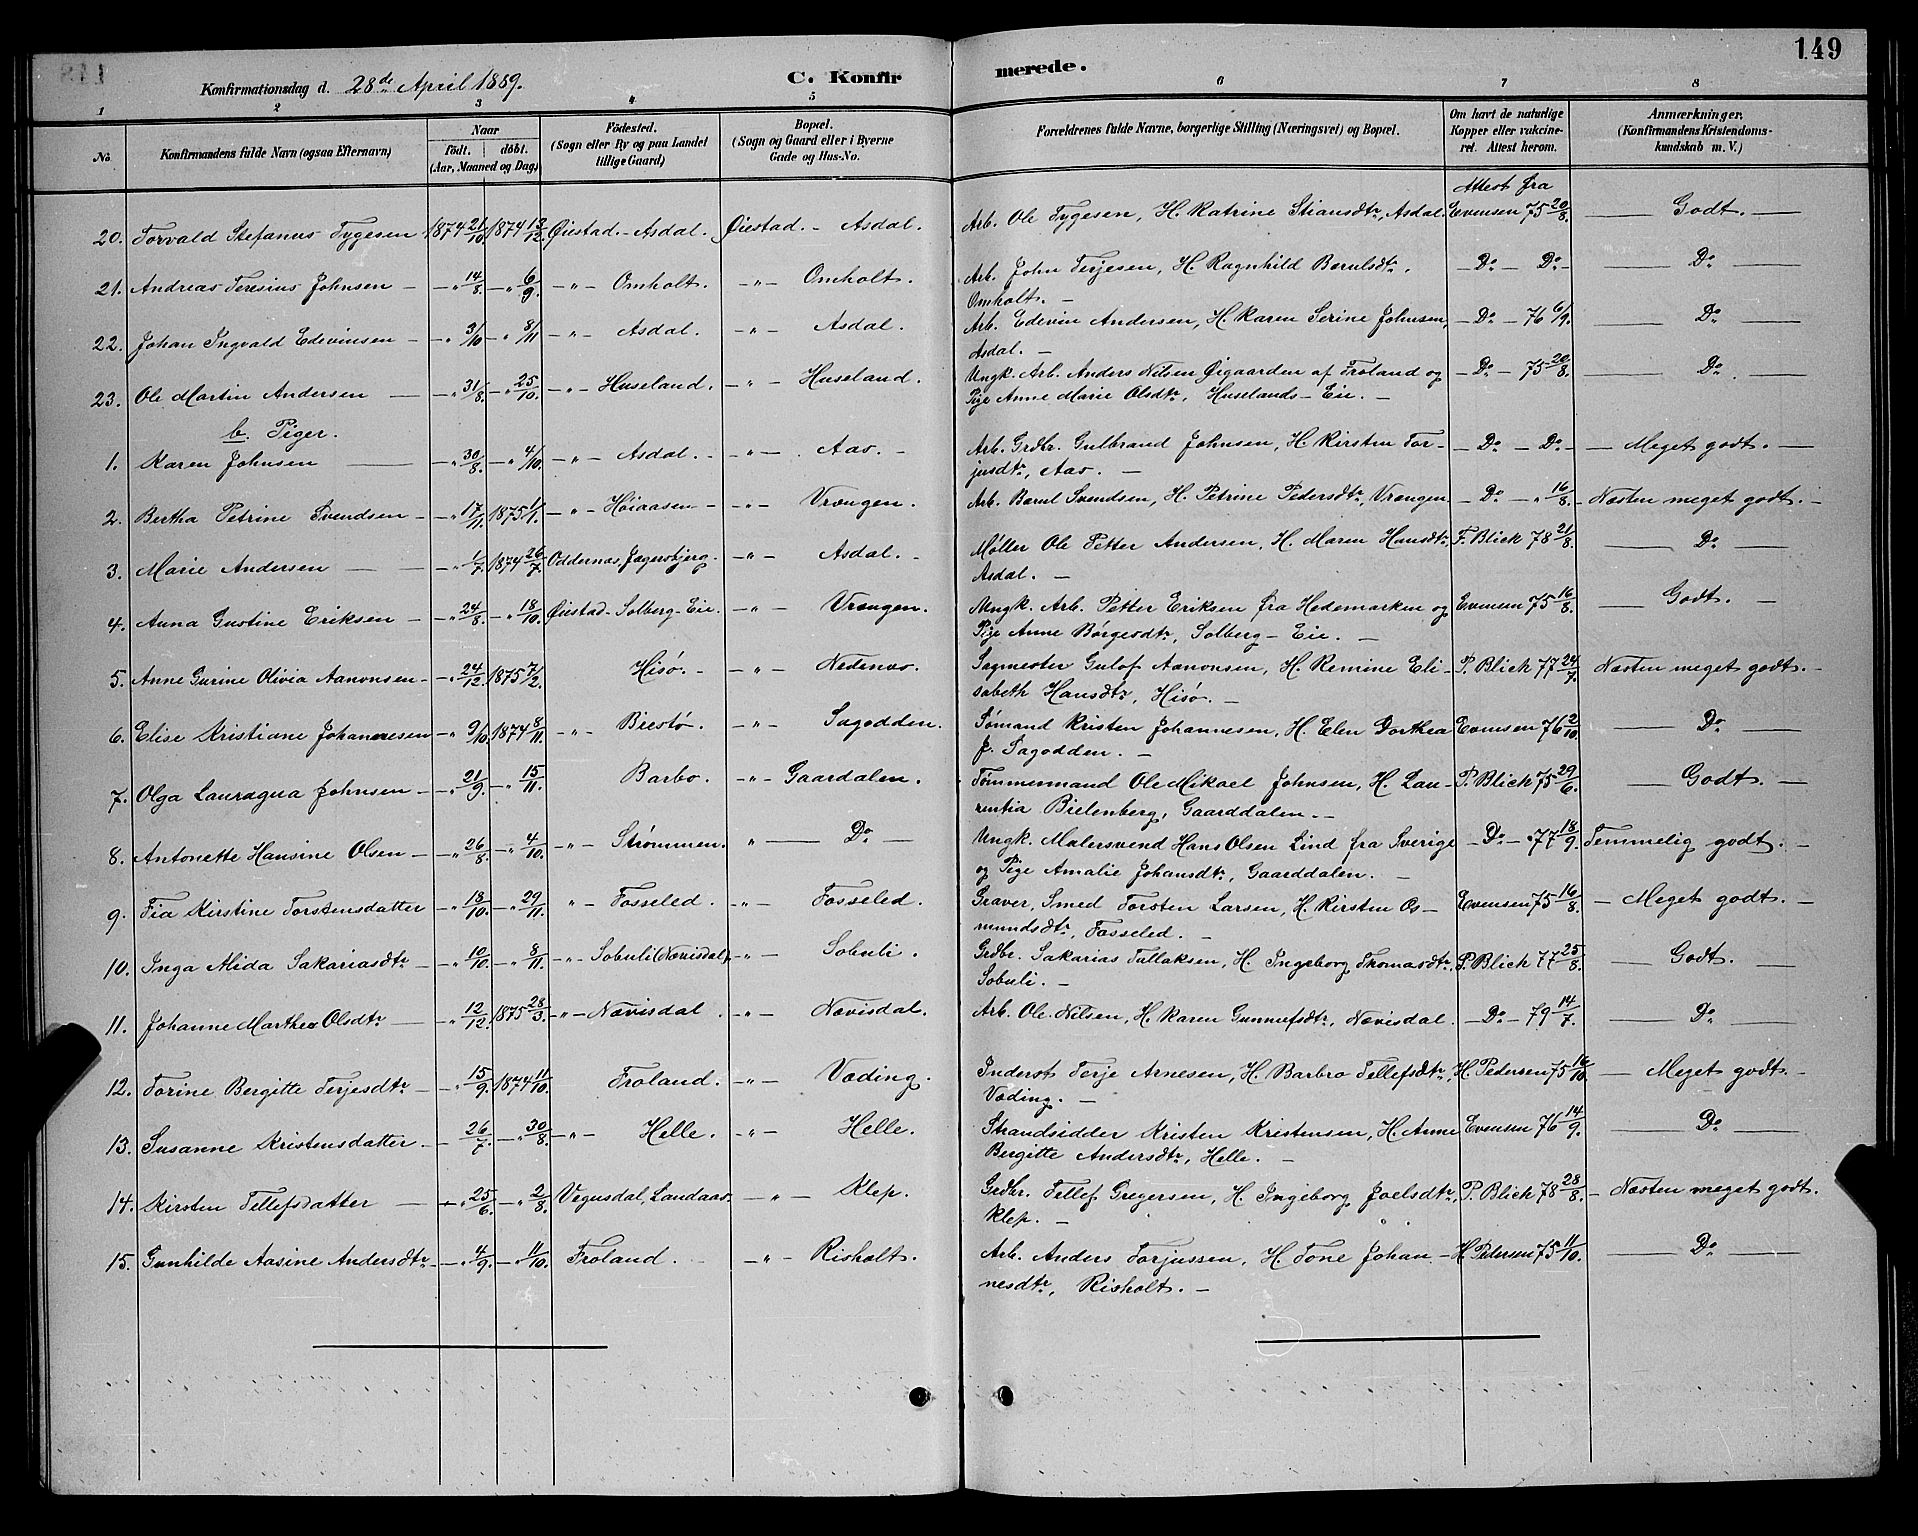 149
Konfirmationsdag d. 28de April 1889.
C. Konfirmerede.
1 2 3 4 5 6 7 8
No. Konfirmandens fulde Navn (ogsaa Efternavn) Naar født. døbt. (Aar, Maaned og Dag) Fødested. (Sogn eller By og paa Landet tillige Gaard) Bopæl. (Sogn og Gaard eller i Byerne Gade og Hus-No. Forældrenes fulde Navne, borgerlige Stilling (Næringsvei) og Bopæl. Om havt de naturlige Kopper eller vakcineret. Attest herom. Anmærkninger. (Konfirmandens Kristendomskundskab m. V.)
Attest fra
20. Torvald Stefanus Tygesen 1874 21/10. 1874 13/12. Øiestad - Asdal. Øiestad. - Asdal. Arb. Ole Tygesen, H. Katrine Stiansdtr, Asdal. Evensen 75 20/8. — Godt. —
21. Andreas Teresius Johnsen — -"- 14/8. -"- 6/9. -"- Omholt. -"- Omholt. Arb. John Terjesen, H. Ragnhild Berulsdtr,
Omholt. — - Do - Do - — Do —
22. Johan Ingvald Edevinsen - -"- 3/10 -"- 8/11 -"- Asdal. -"- Asdal. Arb. Edevin Andersen, H. Karen Serine Johnsen,
Asdal. — - Do - 76 6/9. — Do —
23. Ole Martin Andersen — -"- 31/8. -"- 25/10. -"- Huseland. -"- Huseland. Ungk. Arb. Anders Nilsen Øigaarden af Froland og
Pige Anne Marie Olsdtr, Huselands-Eie. — - Do - 75 20/8. — Do. —
b. Piger.
1. Karen Johnsen — -"- 30/8. -"- 4/10. -"- Asdal. - -"- Aas. - Arb. Grdbr. Gulbrand Johnsen, H. Kirsten Tor-
jusdtr, Aas. — - Do - Do - — Meget godt. —
2. Bertha Petrine Svendsen - -"- 17/11. 1875 1/1. -"- Høiaasen - -"- Vrængen. Arb. Berul Svendsen, H. Petrine Pedersdtr, Vrængen - Do - " 16/8. - Næsten meget godt. -
3. Marie Andersen — -"- 1/7. 1874 26/7. Oddernes, Jegersbjerg. -"- Asdal. - Møller Ole Petter Andersen, H. Maren Hansdtr,
Asdal. — F. Blick 78 21/8. — Do —
4. Anna Gustine Eriksen - -"- 24/8. -"- 18/10. Øiestad - Solberg-Eie. -"- Vrængen. Ungk. Arb. Petter Eriksen fra Hedemarken og
Pige Anne Børgesdtr, Solberg-Eie. — Evensen 75 16/8. — Godt. —
5. Anne Gurine Olivia Aanonsen - -"- 24/12. 1875 7/2. Hisø. - -"- Nedenæs. Sagmester Gulof Aanonsen, H. Remine Eli-
sabeth Hansdtr, Hisø. — P. Blick 77 24/7. Næsten meget godt. -
6. Elise Kristiane Johannesen -"- 9/10. 1874 8/11. -"- Biestø. -"- Sagodden. Sømand Kristen Johannesen, H. Elen Dorthea
f. Sagodden. — Evensen 76 2/10. — Do —
7. Olga Lauragua Johnsen - -"- 21/9. -"- 15/11. Barbo. -"- Gaardalen. Tømmermand Ole Mikael Johnsen, H. Lau-
rentia Bielenberg, Gaarddalen. - P. Blick 75 29/6. — Godt. —
8. Antonette Hansine Olsen - -"- 26/8. -"- 4/10. -"- Strømmen. " — Do — Ungk. Malersvend Hans Olsen Lind fra Sverige
og Pige Amalie Johansdtr, Gaarddalen. — - Do - 77 18/9. Temmelig godt. -
9. Fia Kirstine Torstensdatter -"- 18/10. -"- 29/11. " - Fosseled. -"- Fosseled. Graver, Smed Torsten Larsen, H. Kirsten Os-
mundsdtr, Fosseled. — Evensen 75 16/8. — Meget godt. —
10. Inga Alida Sakariasdtr - -"- 10/10. -"- 8/11. -"- Sobuli (Nævisdal). -"- Sobuli. Grdbr. Sakarias Tallaksen, H. Ingeborg Thomasdtr,
Sobuli. — P. Blick 77 25/8. — Godt. —
11. Johanne Marthea Olsdtr — -"- 12/12. 1875 28/3. -"- Nævisdal. -"- Nævisdal. Arb. Ole Nilsen, H. Karen Gunnufsdtr, Nævisdal. - Do - 79 14/7. — Do —
12. Torine Bergitte Terjesdtr - -"- 15/9. 1874 11/10. Froland. -"- Væding. Inderst Terje Arnesen, H. Barbro Tellefsdtr,
Væding. — H. Pedersen 75 16/10. — Meget godt. -
13. Susanne Kristensdatter - -"- 26/7. -"- 30/8. -"- Helle. -"- Helle. Strandsidder Kristen Kristensen, H. Anne
Bergitte Andersdtr, Helle. — Evensen 76 14/9. — Do —
14. Kirsten Tellefsdatter — -"- 25/6. -"- 2/8. Vegusdal, Landaas. -"- Klep. Grdbr. Tellef Gregersen, H. Ingeborg Joelsdtr,
Klep. — P. Blick 78 28/8. - Næsten meget godt.
15. Gunhilde Aasine Andersdtr - -"- 4/9. -"- 11/10. Froland. -"- Risholt. Arb. Anders Torjussen, H. Tone Johan-
nesdtr, Risholt. — H. Pedersen 75 11/10. — Do —